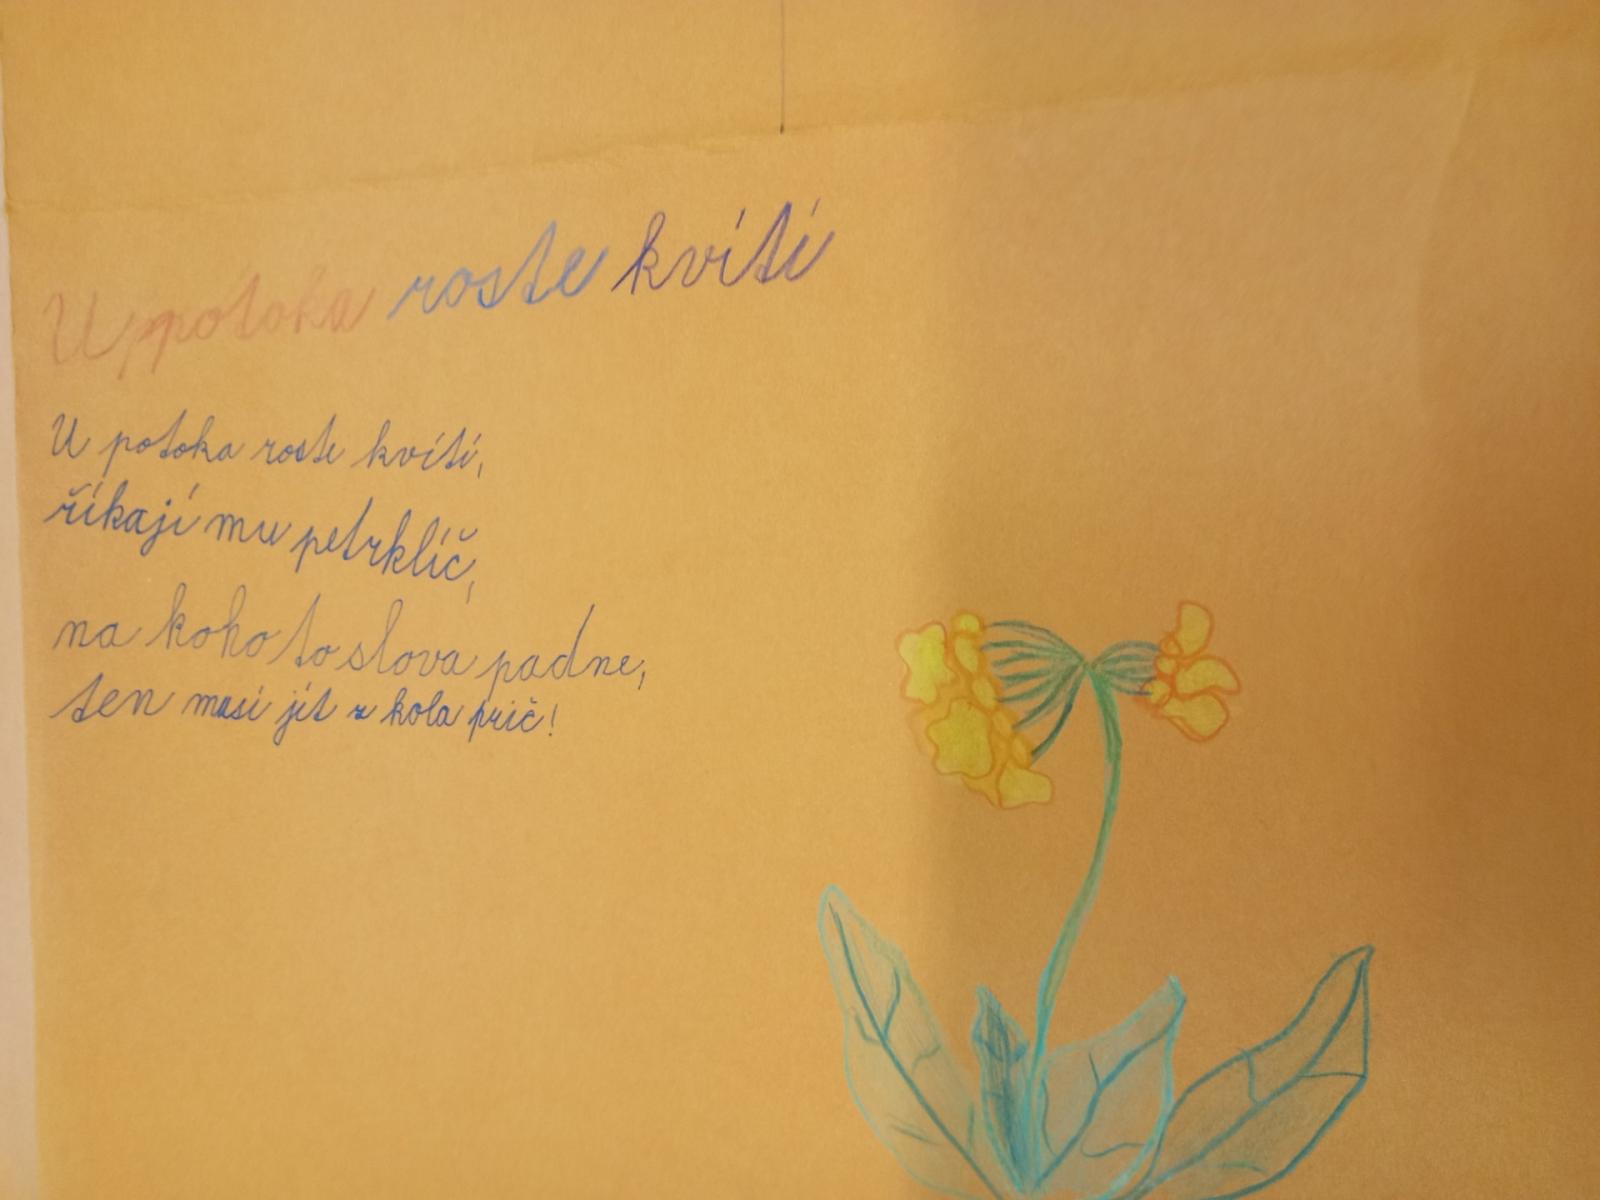 U potoka roste kvítí
U potoka roste kvítí,
říkají mu petrklíč,
na koho to slova padne,
ten musí jít z kola prič!